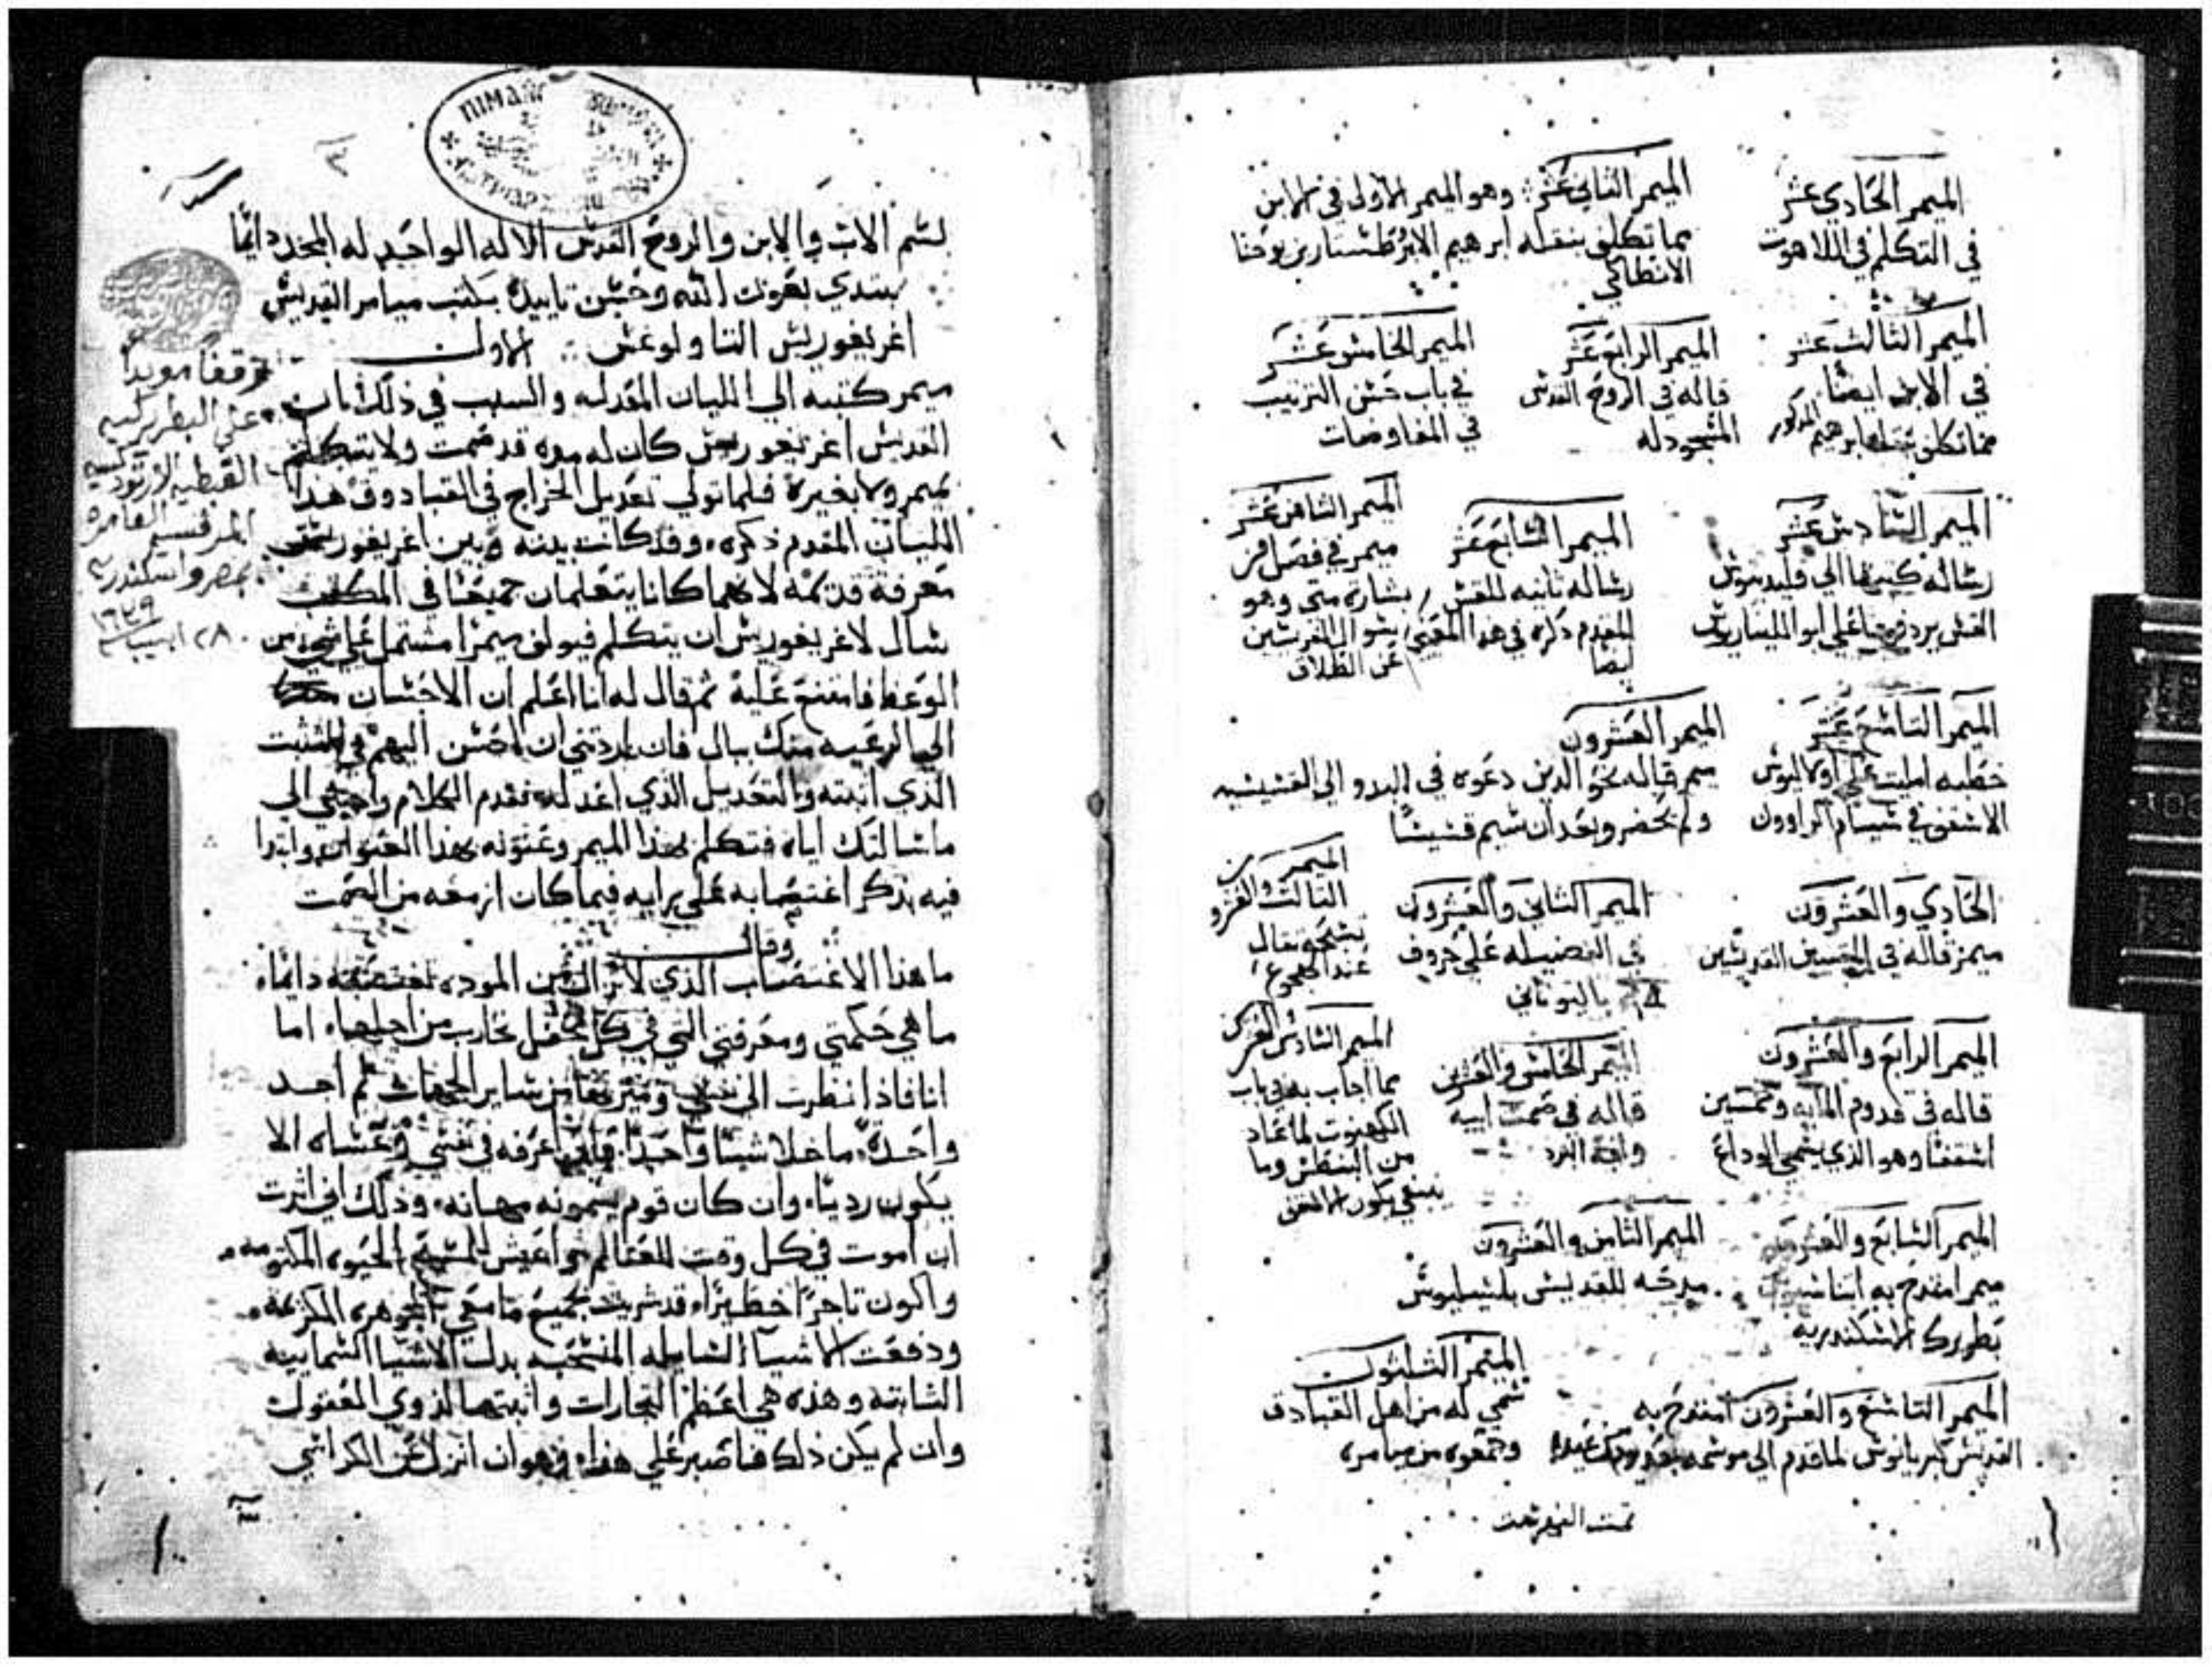 الميمر الحادي عشر
في التكلم في اللاهوت
الميمر الثاني عشر وهو الميمر الاول في الابن
مما تكلف بنقله ابرهيم الابرطسبار بن يوحنا
الانطاكي
الميمر الثالث عشر
في الابن ايضا
مما تكلف بنقله ابرهيم المذكور
الميمر الرابع عشر
قاله في الروح القدس
المسجود له
الميمر الخامس عشر
في باب حسن الترتيب
في المفاوضات
الميمر السادس عشر
رساله كتبها الي قليدينوس
القس يرد فيها علي ابوالليناريوس
الميمر السابع عشر
رساله ثانيه للقس
المقدم ذكره في هذا المعني
ايضا
الميمر الثامن عشر
ميمر في فصل من
بشارة متي وهو
سوال الفريسين
عن الطلاق
الميمر التاسع عشر
خطبه امليت علي اولاليوس
الاسقف في
الميمر العشرون
ميمر قاله نحو الذين دعوه في البدو الي القسيسيه
ولم يحضر وبعد ان سيم قسيسا
الحادي والعشرون
ميمر قاله في المقبيين القديسين
الميمر الثاني والعشرون
في الفضيله علي حروف
باليوناني
الميمر
الثالث والعشرو
تسبحه تقال
عند الهجوع
الميمر الرابع والعشرون
قاله في قدوم المايه وخمسين
اسقفا وهو الذي يسمي الوداع
الميمر الخامس والعشرين
قاله في صمت ابيه
وافة البرد
الميمر السادس والعشرين
مما اجاب به في باب
الكهنوت لما عاد
من البنطس وما
ينبغي يكون الاسقف
الميمر السابع والعشرون
ميمر امتدح به اتناسيوس
بطريرك الاسكندريه
الميمر الثامن والعشرون
مدحه للقديس باسيليوس
الميمر التاسع والعشرون امتدح به
القديس كبريانوس لما قدم الي موضعه بعد يوم من عيده
الميمر الثلثون
سمي له من اهل القبادق
وجمعوه من ميامره
تمت الفهرست
بسم الاب والابن والروح القدس الاله الواحد له المجد دائما
نبتدي بعون الله وحسن تاييده بكتب ميامر القديس
اغريغوريس التاولوغس الاول
ميمر كتبه الي الليان المعدله والسبب في ذلك ان
القديس اغريغوريس كان له مده قد صمت ولا يتكلم
بميمر ولا بغيره فلما تولي تعديل الخراج في القبادوق هذا
الليان المقدم ذكره وقد كانت بينه وبين اغريغوريس
معرفة قديمه لانهما كانا يتعلمان جميعا في المكتب
سال لاغريغوريس ان يتكلم فيولف ميمرا مشتمل علي شي من
الوعظ فامتنع عليه ثم قال له انا اعلم ان الاحسان
الي الرعيه منك ببال فان اردتني ان احسن اليهم في الثبت
الذي اثبته والتعديل الذي اعدله فقدم الكلام واجبني الي
ما سالتك اياه فتكلم بهذا الميمر وعنونه بهذا العنوان وابتدا
فيه بذكر اغتصابه علي رايه فيما كان ازمعه من الصمت
وقال
ما هذا الاغتصاب الذي لا تزال من الموده تغتصبه دايما
ما هي حكمتي ومعرفتي التي في كل محفل تحارب من اجلها اما
انا فاذا نظرت الي نفسي وميزتها من ساير الجهات لم اجد
واحدة ما خلا شيا واحدا فاني اعرفه في نفسي وعساه الا
يكون رديا وان كان قوم يسمونه مهانه وذلك اني اثرت
ان اموت في كل وقت للعالم واعيش للمسيح الحيوه المكتومه
واكون تاجرا خطيرا قد شريت بجميع ما معي الجوهره الكريمه
ودفعت الاشيا السايله المنسحبه بدل الاشيا السماييه
الثابته وهذه هي اعظم التجارات واثبتها لذوي العقول
وان لم يكن ذلك فناصبر علي هذا وهو ان انزل عن الكراسي
وقفا موبدا
علي البطريركيه
القبطيه الارتودكسيه
المرقسيه العامره
بمصر واسكندريه
٢٨ ابيب ١٦٢٩